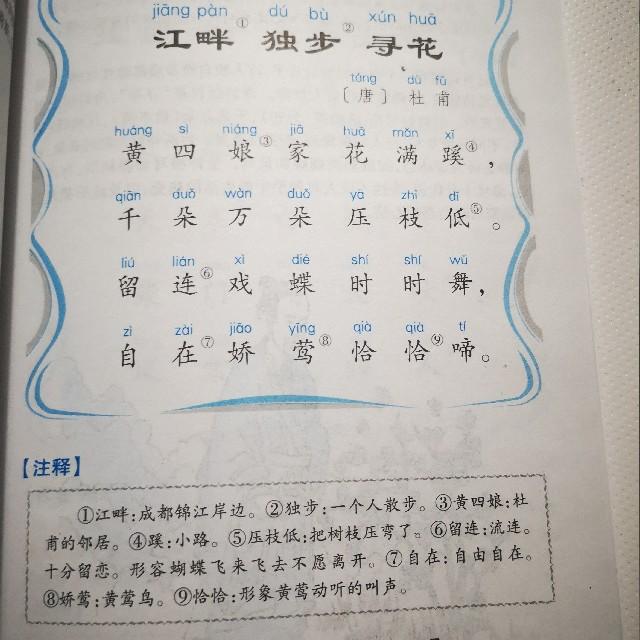 jiāng pàn dú bù xún huā
江畔①独步②寻花
táng dù fǔ
〔唐〕杜甫
huáng sì niáng jiā huā mǎn xī
黄四娘③家花满蹊④，
qiān duǒ wàn duǒ yā zhī dī
千朵万朵压枝低⑤。
liú lián xì dié shí shí wǔ
留连⑥戏蝶时时舞，
zì zài jiāo yīng qià qià tí
自在⑦娇莺⑧恰恰⑨啼。
【注释】
①江畔：成都锦江岸边。②独步：一个人散步。③黄四娘：杜
甫的邻居。④蹊：小路。⑤压枝低：把树枝压弯了。⑥留连：流连。
十分留恋。形容蝴蝶飞来飞去不愿离开。⑦自在：自由自在。
⑧娇莺：黄莺鸟。⑨恰恰：形象黄莺动听的叫声。